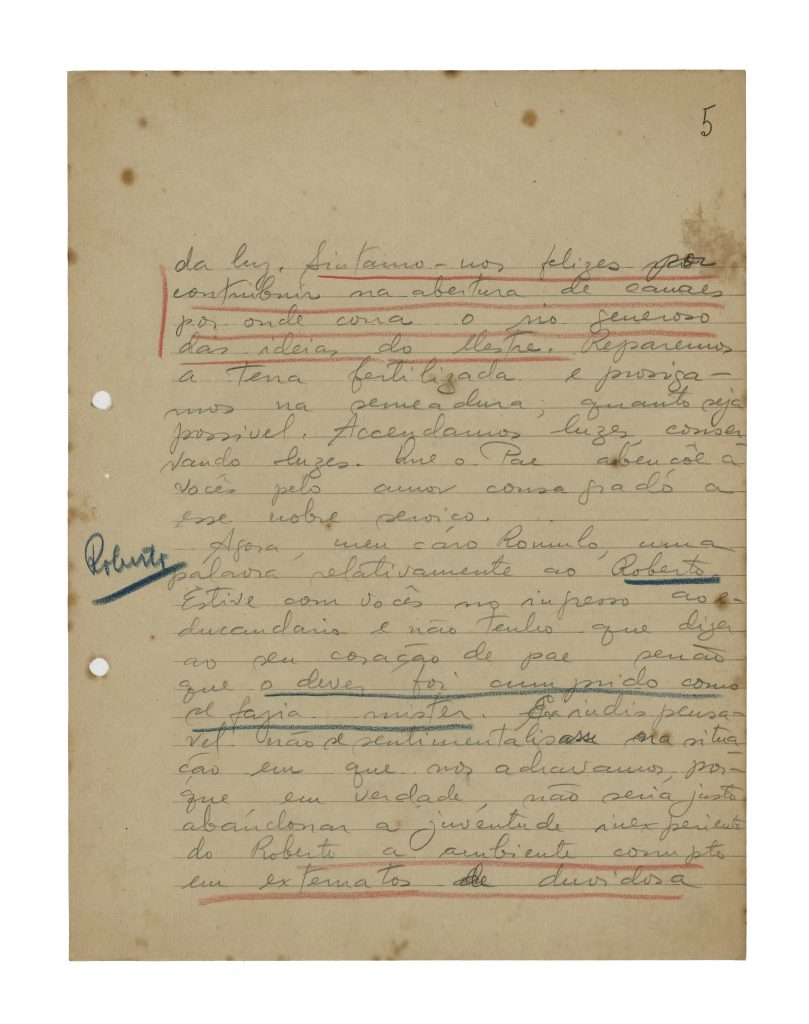 5
da luz. Sintamo-nos felizes por
contribuir na abertura de canaes
por onde corra o rio generoso
das ideias do Mestre. Reparemos
a terra fertilizada e prosiga-
mos na semeadura, quanto seja
possivel. Accendamos luzes, conser
vando luzes. Que o Pae abençôe a
vocês pelo amor consagrado a
esse nobre serviço.
Agora, meu caro Romulo, uma
Roberto
palavra relativamente ao Roberto.
Estive com vocês no ingresso ao e-
ducandario e não tenho que dizer
ao seu coração de pae senão
que o dever foi cumprido como
se fazia mistér. Era indispensa-
vel não se sentimentalisasse na situa
ção em que nos achavamos, por-
que em verdade, não seria justo
abandonar a juventude inexperiente
do Roberto a ambiente corrupto
em externatos de duvidosa